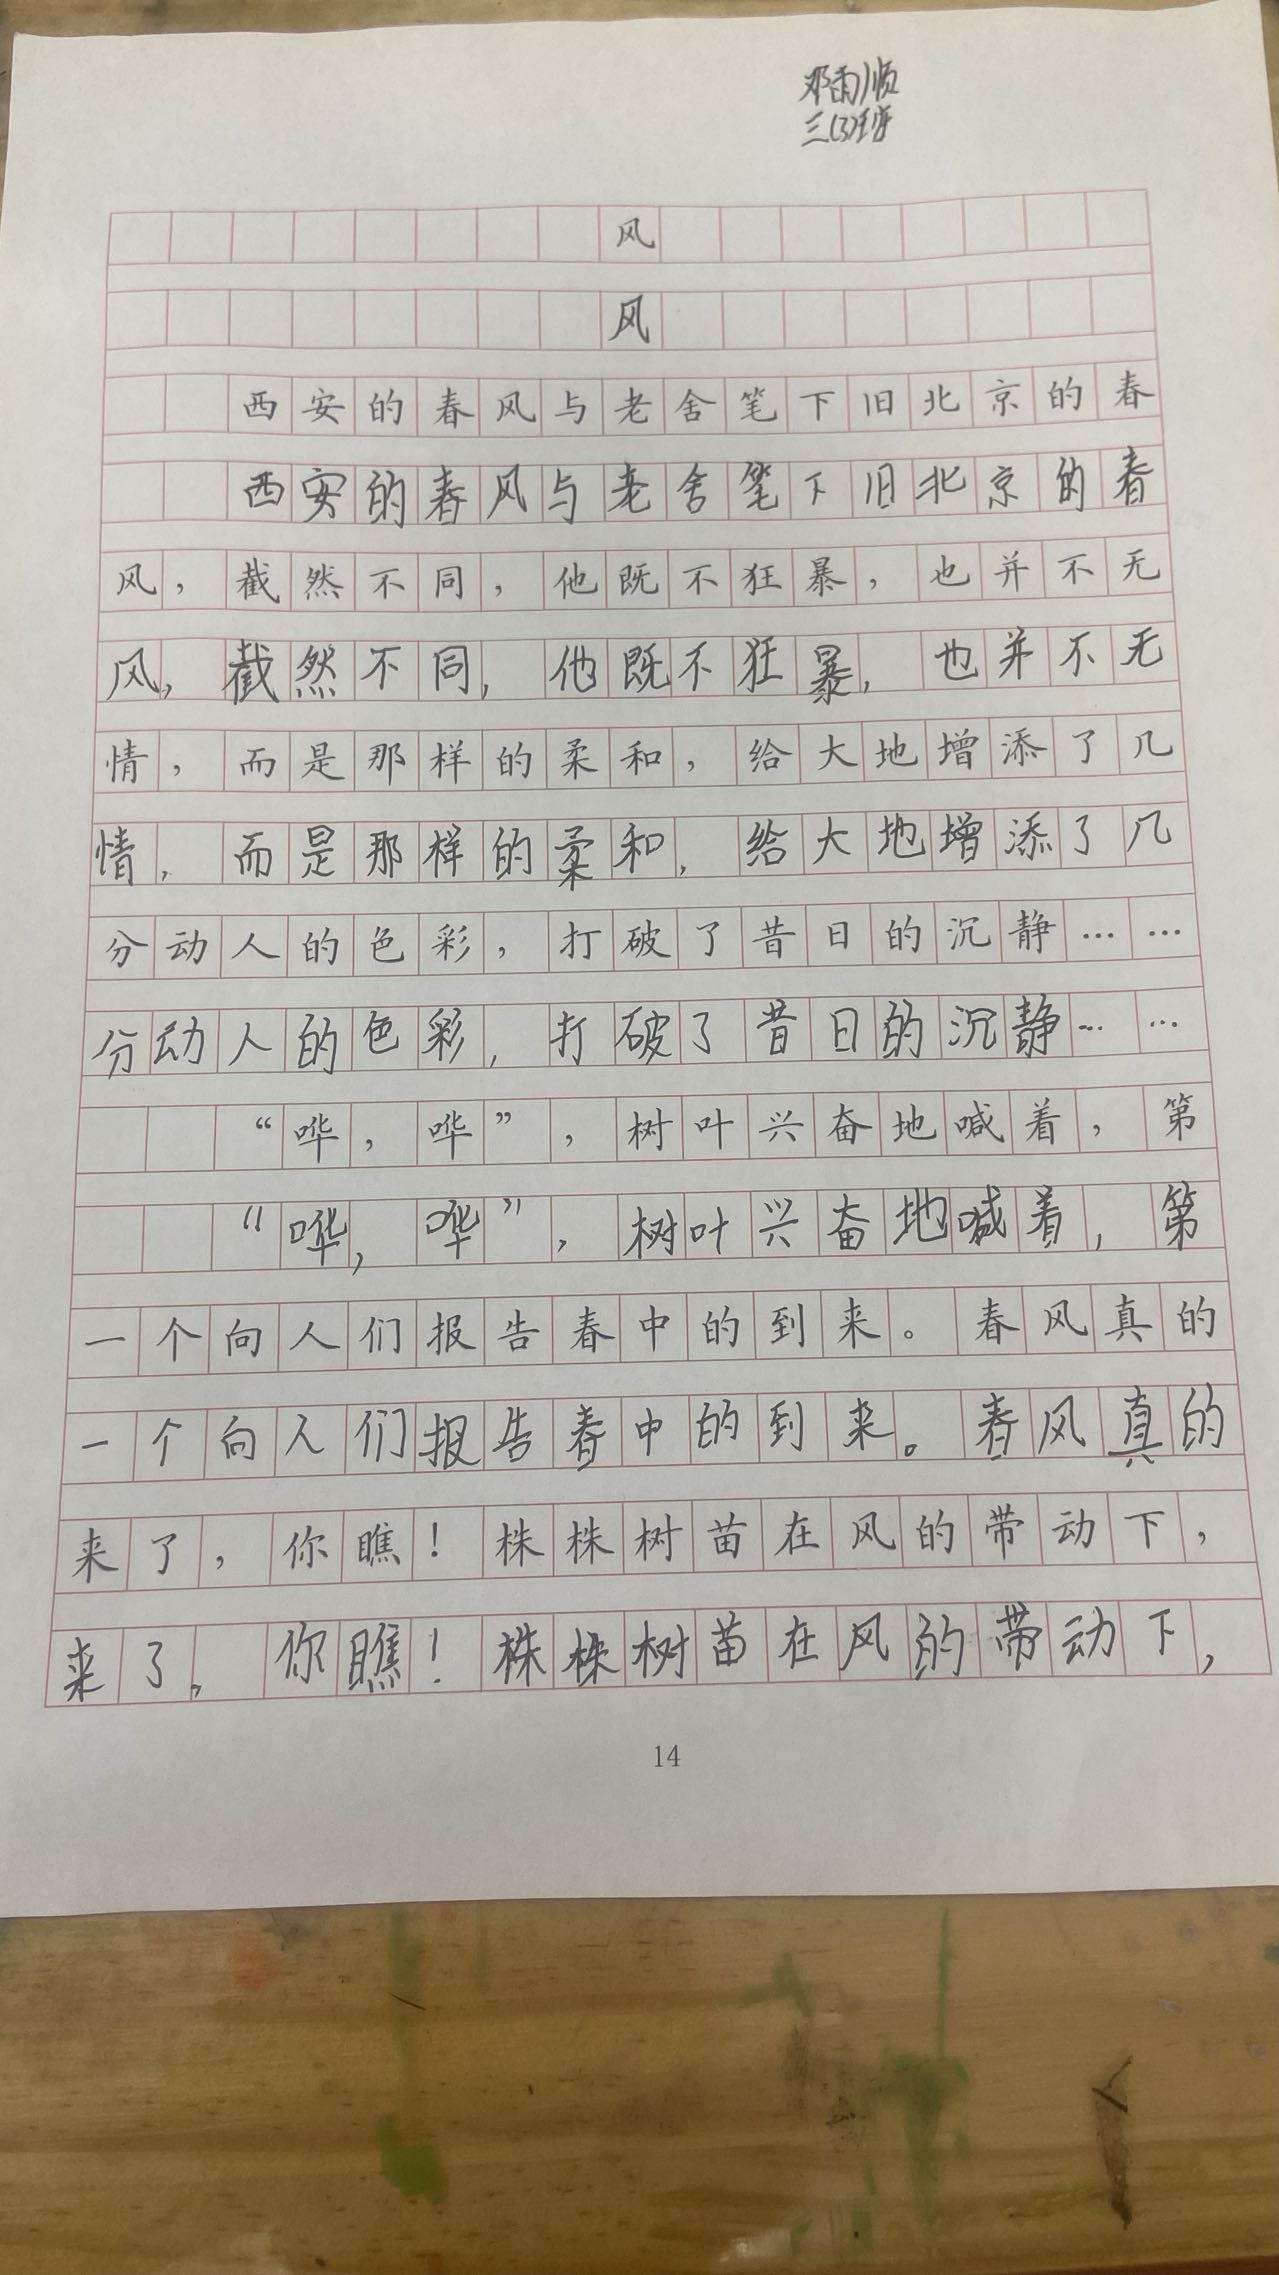 邓雨顺
三(3)班
风
风
西安的春风与老舍笔下旧北京的春
西安的春风与老舍笔下旧北京的春
风，截然不同，他既不狂暴，也并不无
风，截然不同，他既不狂暴，也并不无
情，而是那样的柔和，给大地增添了几
情，而是那样的柔和，给大地增添了几
分动人的色彩，打破了昔日的沉静……
分动人的色彩，打破了昔日的沉静……
“哗，哗”，树叶兴奋地喊着，第
“哗，哗”，树叶兴奋地喊着，第
一个向人们报告春中的到来。春风真的
一个向人们报告春中的到来。春风真的
来了，你瞧！株株树苗在风的带动下，
来了。你瞧！株株树苗在风的带动下，
14